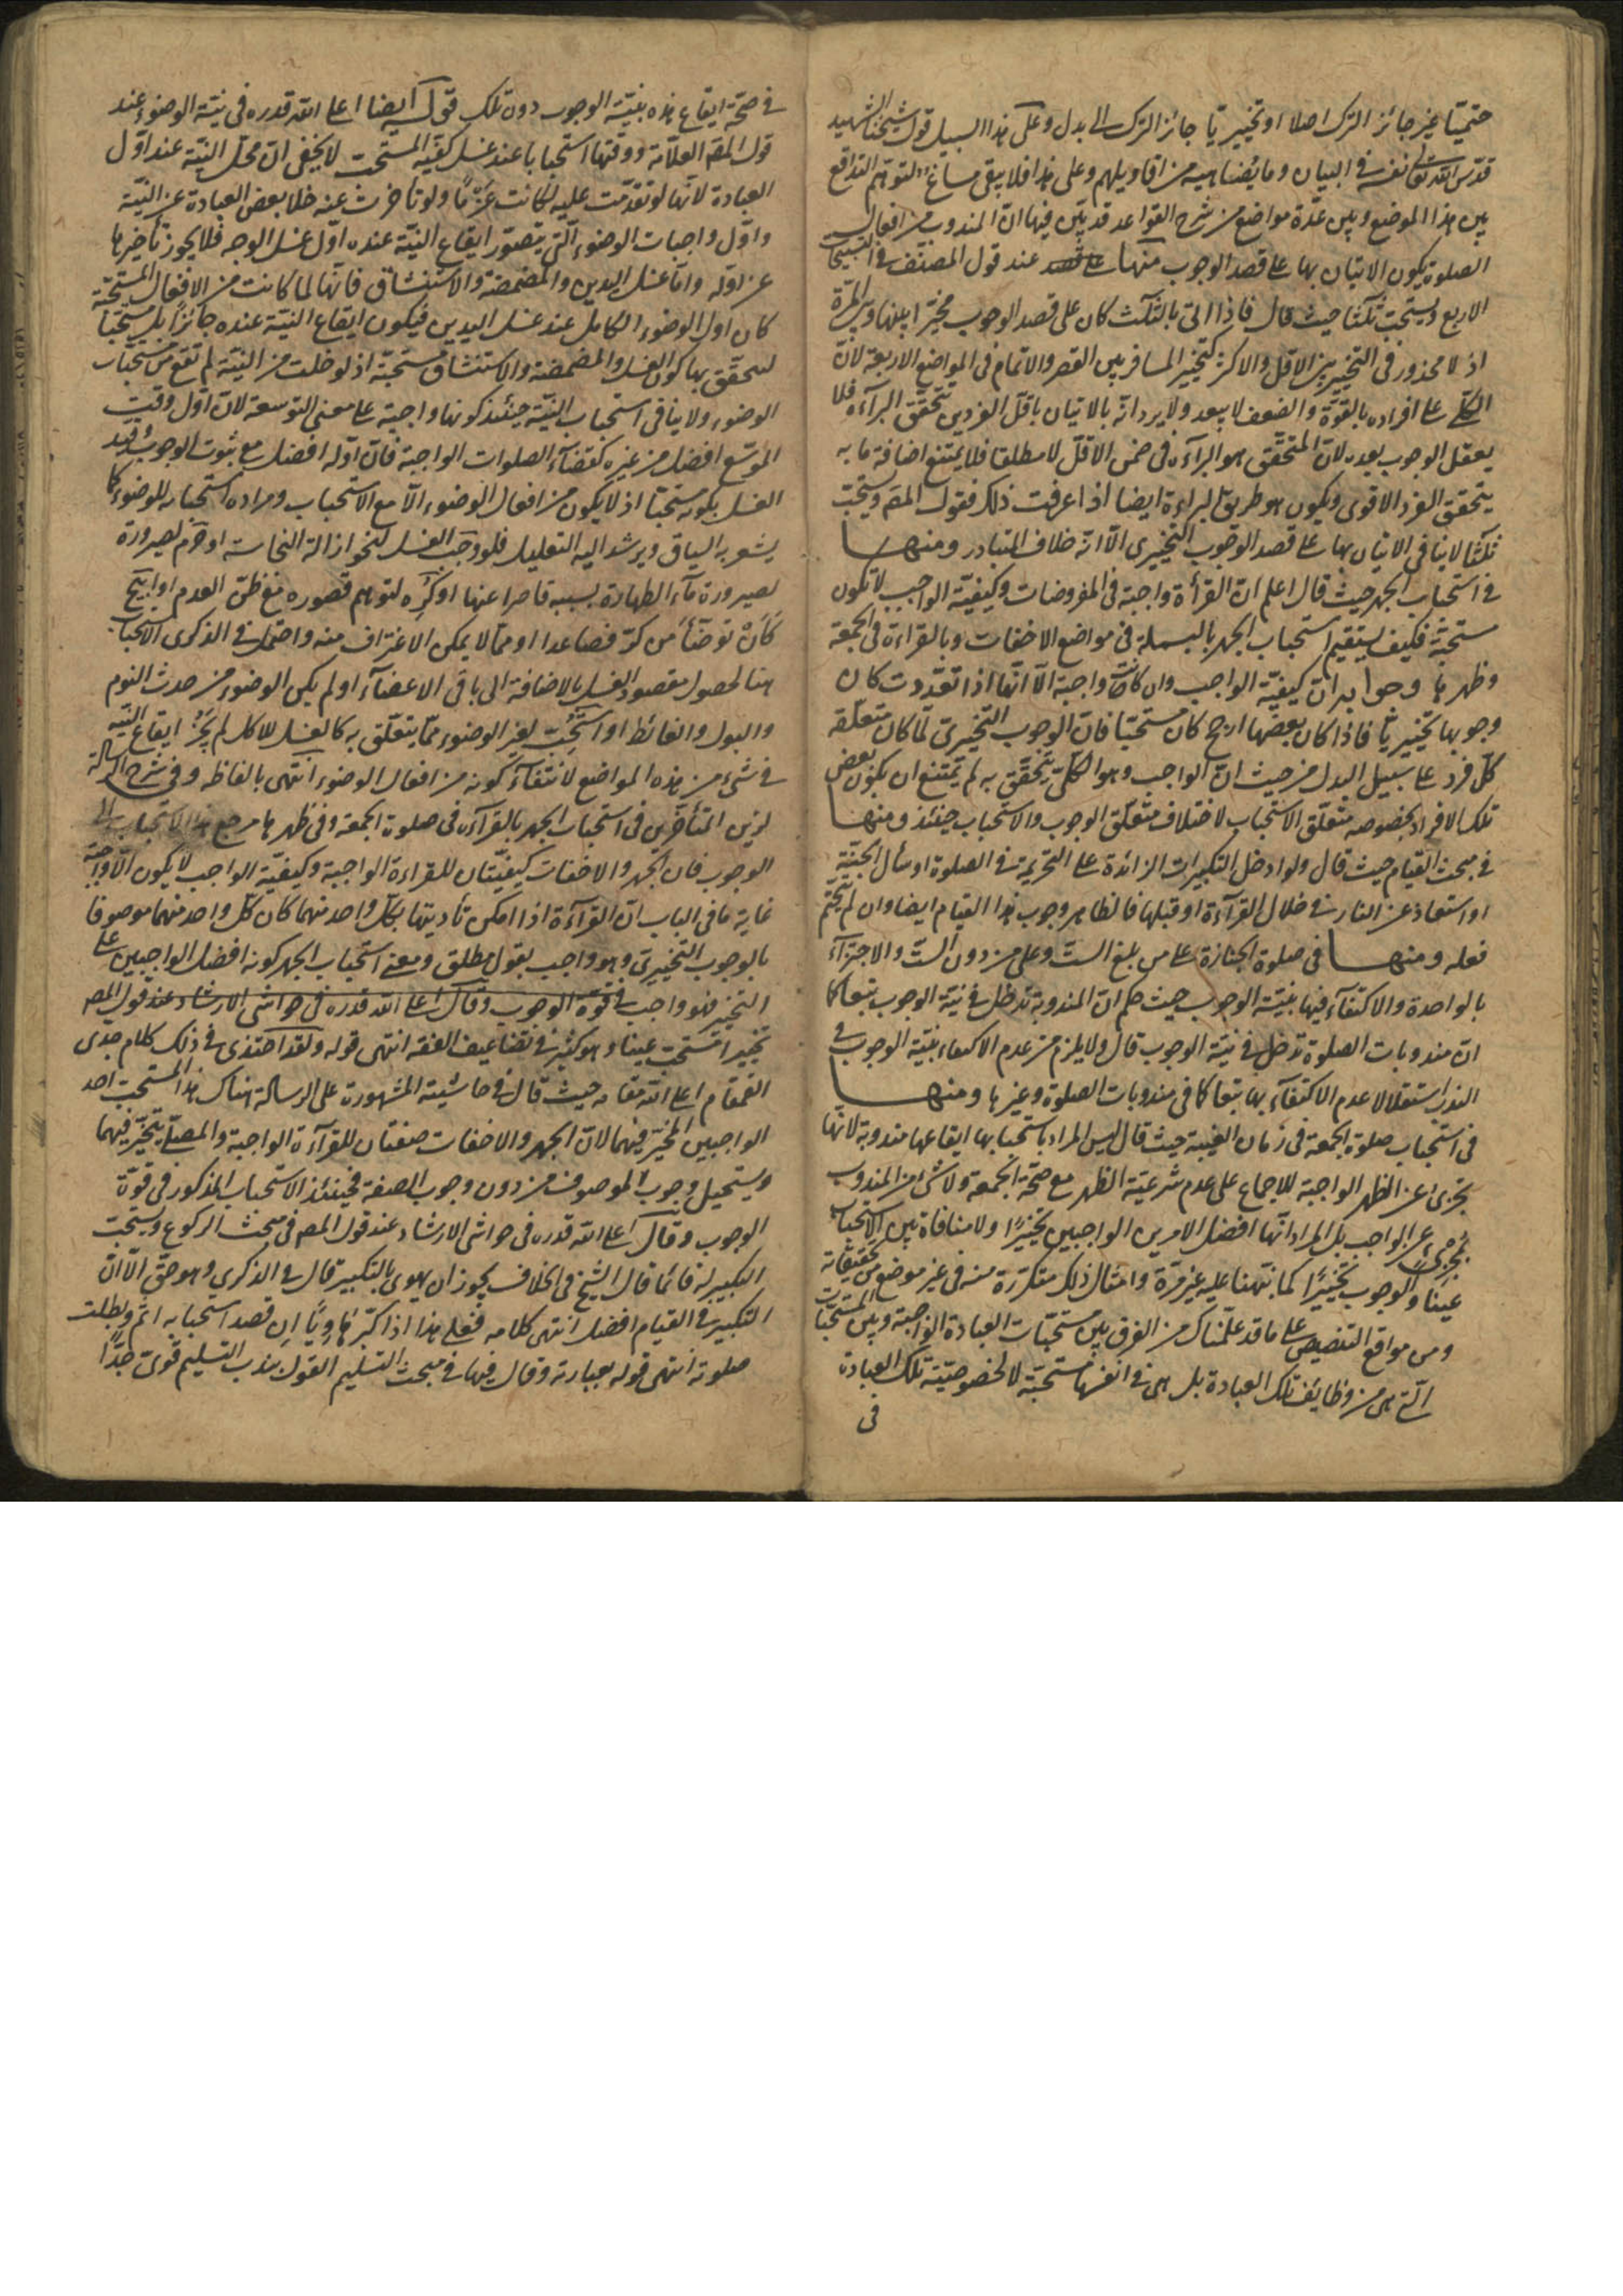 حتميّا غير جائز الترك اصلا او تخييريّا جائز الترك الى بدل وعلى هذا السبيل قول شيخنا الشهيد
قدّس الله تعالى نفسه في البيان وما يضاهيه من اقاويلهم وعلى هذا فلا يبقى مساغ لتوهّم التدافع
بين هذا الموضع وبين عدّة مواضع من شرح القواعد قد بيّن فيها انّ المندوب من افعال
الصلوة يكون الاتيان بها على قصد الوجوب منها عند قول المصنّف في التسبيحات
الاربع ويستحبّ ثلثا حيث قال فاذا اتى بالثلث كان على قصد الوجوب مخيّرا بينها وبين المرّة
اذ لا محذور في التخيير بين الاقل والاكثر كتخيير المسافر بين القصر والاتمام في المواضع الاربعة لانّ
الكلّي على افراده بالقوّة والضعف لا يبعد ولا يرد انّه بالاتيان باقلّ الفردين تتحقّق البرآءة فلا
يعقل الوجوب بعده لانّ المتحقّق هو البرآءة في ضمن الاقلّ لا مطلقا فلا يمتنع اضافة ما به
يتحقق الفرد الاقوى ويكون هو طريق البراءة ايضا اذا عرفت ذلك فقول المصّ ويستحبّ
ثلثا لا ينافي الاتيان بها على قصد الوجوب التخييري الّا انّه خلاف المتبادر ومنها
في استحباب الجهر حيث قال اعلم انّ القرأة واجبة في المفروضات وكيفيّة الواجب لا تكون
مستحبّة فكيف يستقيم استحباب الجهر بالبسملة في مواضع الاخفات وبالقراءة في الجمعة
وظهرها وجوابه انّ كيفيّة الواجب وان كانت واجبة الّا انّها اذا تعدّدت كان
وجوبها تخييريّا فاذا كان بعضها ارجح كان مستحبّا فانّ الوجوب التخييريّ لمّا كان متعلّقه
كلّ فرد على سبيل البدل من حيث انّ الواجب وهو الكلّي يتحقّق به لم يمتنع ان يكون بعض
تلك الافراد بخصوصه متعلّق الاستحباب لاختلاف متعلّق الوجوب والاستحباب حينئذ ومنها
في مبحث القيام حيث قال ولو ادخل التكبيرات الزائدة على التحريمة في الصلوة او سأل الجنّة
او استعاذ عن النار في خلال القرآءة او قبلها فالظاهر وجوب هذا القيام ايضا وان لم يتحتّم
فعله ومنها في صلوة الجنازة على من بلغ الستّ وعلى من دون الستّ والاجتزآء
بالواحدة والاكتفآء فيها بنيّة الوجوب حيث حكم انّ المندوبة تدخل في نيّة الوجوب تبعا كما
انّ مندوبات الصلوة تدخل في نيّة الوجوب قال ولا يلزم من عدم الاكتفاء بنيّة الوجوب في
الندب استقلالا عدم الاكتفآء بها تبعا كما في مندوبات الصلوة وغيرها ومنها
في استحباب صلوة الجمعة في زمان الغيبة حيث قال ليس المراد باستحبابها ايقاعها مندوبة لانّها
تجزئ عن الظهر الواجبة للاجماع على عدم شرعيّة الظهر مع صحّة الجمعة ولا شئ من المندوب
بمجزئ عن الواجب بل المراد انّها افضل الامرين الواجبين تخييرًا ولا منافاة بين الاستحباب
عينًا والوجوب تخييرًا كما نبّهنا عليه غير مرّة وامثال ذلك متكرّرة منه في غير موضع من تحقيقاته
ومن مواقع التنصيص على ما قد علّمناك من الفرق بين مستحبّات العبادة الواجبة وبين المستحبّات
الّتي هي من وظايف تلك العبادة بل هي في انفسها مستحبّة لا لخصوصيّة تلك العبادة
في
في صحّة ايقاع هذه بنيّة الوجوب دون تلك قوله ايضا اعلى الله قدره في نيّة الوضوء عند
قول المصّ العلّامة ووقتها استحبابا عند غسل كفّيه المستحب لا يخفى انّ محلّ النيّة عند اوّل
العبادة لانّها لو تقدّمت عليه لكانت عزمًا ولو تأخرت عنه خلا بعض العبادة عن النيّة
واوّل واجبات الوضوء الّتي يتصوّر ايقاع النيّة عنده اوّل غسل الوجه فلا يجوز تأخيرها
عن اوّله وامّا غسل اليدين والمضمضة والاستنشاق فانّها لما كانت من الافعال المستحبّة
كان اول الوضوء الكامل عند غسل اليدين فيكون ايقاع النيّة عنده جائزًا بل مستحبّا
ليتحقّق بها كون الغسل والمضمضة والاستنشاق مستحبّة اذ لو خلت من النيّة لم تقع من مستحبات
الوضوء ولا ينافي استحباب النيّة حينئذ كونها واجبة على معنى التوسعة لانّ اوّل وقت
الموسّع افضل من غيره كقضآء الصلوات الواجبة فانّ اوّله افضل مع ثبوت الوجوب وقيد
الغسل بكونه مستحبّا اذ لا يكون من افعال الوضوء الّا مع الاستحباب ومراده استحبابه للوضوء كما
يشعر به السياق ويرشد اليه التعليل فلو وجب الغسل لنحو ازالة النجاسة او حرم لصيرورة
لصيرورة مآء الطهارة بسببه قاصرا عنها او كُرِه لتوهم قصوره مع ظنّ العدم او ابيح
كَأَنْ توضّأ من كرّ فصاعدا او ممّا لا يمكن الاغتراف منه واحتمل في الذكرى الاستحباب
هنا لحصول مقصود الغسل بالاضافة الى باقي الاعضآء او لم يكن الوضوء من حدث النوم
والبول والغائط او استحبّ لغير الوضوء ممّا يتعلّق به كالغسل للاكل لم يَجُز ايقاع النيّة
في شئ من هذه المواضع لانتفآء كونه من افعال الوضوء انتهى بالفاظه وفي شرح الرسالة
لزين المتأخّرين في استحباب الجهر بالقرآءة في صلوة الجمعة وفي ظهرها مرجع هذا الاستحباب الى
الوجوب فان الجهر والاخفات كيفيّتان للقراءة الواجبة وكيفيّة الواجب لا يكون الّا واجبة
غاية ما في الباب انّ القرآءة اذا امكن تأديتها بكلّ واحد منهما كان كلّ واحد منهما موصوفا
بالوجوب التخييري وهو واجب بقول مطلق ومعنى استحباب الجهر كونه افضل الواجبين على
التخيير فهو واجب في قوّة الوجوب وقال اعلى الله قدره في حواشي الارشاد عند قول المصّ
تخييرا مستحبّ عينا وهو كثير في تضاعيف الفقه انتهى قوله ولقد احتذى في ذلك كلام جدّى
القمقام اعلى الله مقامه حيث قال في حاشيته المشهورة على الرسالة هناك هذا المستحب احد
الواجبين المخيّر فيهما لانّ الجهر والاخفات صفتان للقرآءة الواجبة والمصلّي يتخيّر فيهما
ويستحيل وجوب الموصوف من دون وجوب الصفة فحينئذ الاستحباب المذكور في قوّة
الوجوب وقال اعلى الله قدره في حواشي الارشاد عند قول المصّ في مبحث الركوع ويستحب
التكبير له قائما قال الشيخ في الخلاف يجوز ان يهوى بالتكبير قال في الذكرى وهو حقّ الّا انّ
التكبير في القيام افضل انتهى كلامه فعلى هذا اذا كبّر هاويًا ان قصد استحبابه اثم وبطلت
صلوته انتهى قوله بعبارته وقال فيها في مبحث التسليم القول بندب التسليم قوىّ جدًّا